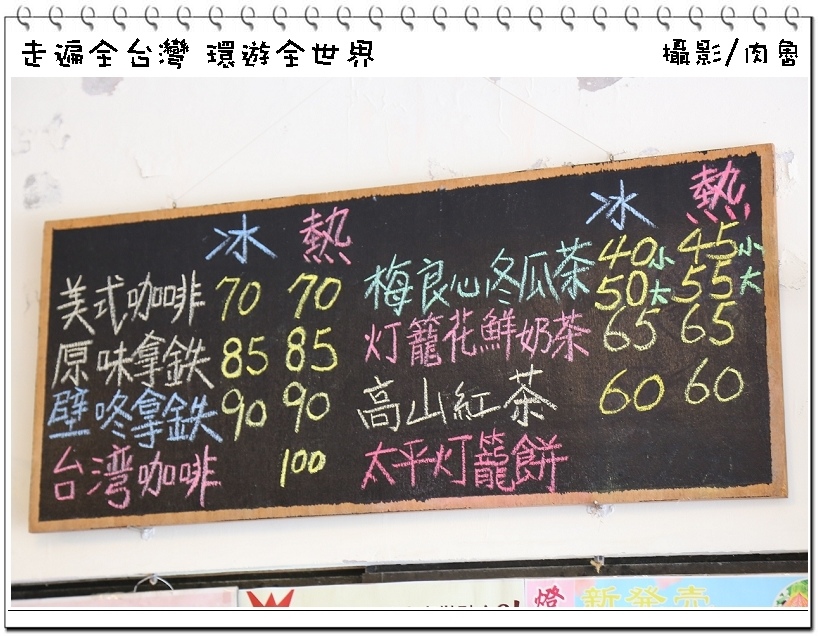 走遍全台灣 環遊全世界
攝影/肉魯
冰 熱
美式咖啡 70 70
原味拿鉄 85 85
壁咚拿鉄 90 90
台灣咖啡 100
冰 熱
梅良心冬瓜茶 40小 45小
50大 55大
灯籠花鮮奶茶 65 65
高山紅茶 60 60
太平灯籠餅
燈 新発売